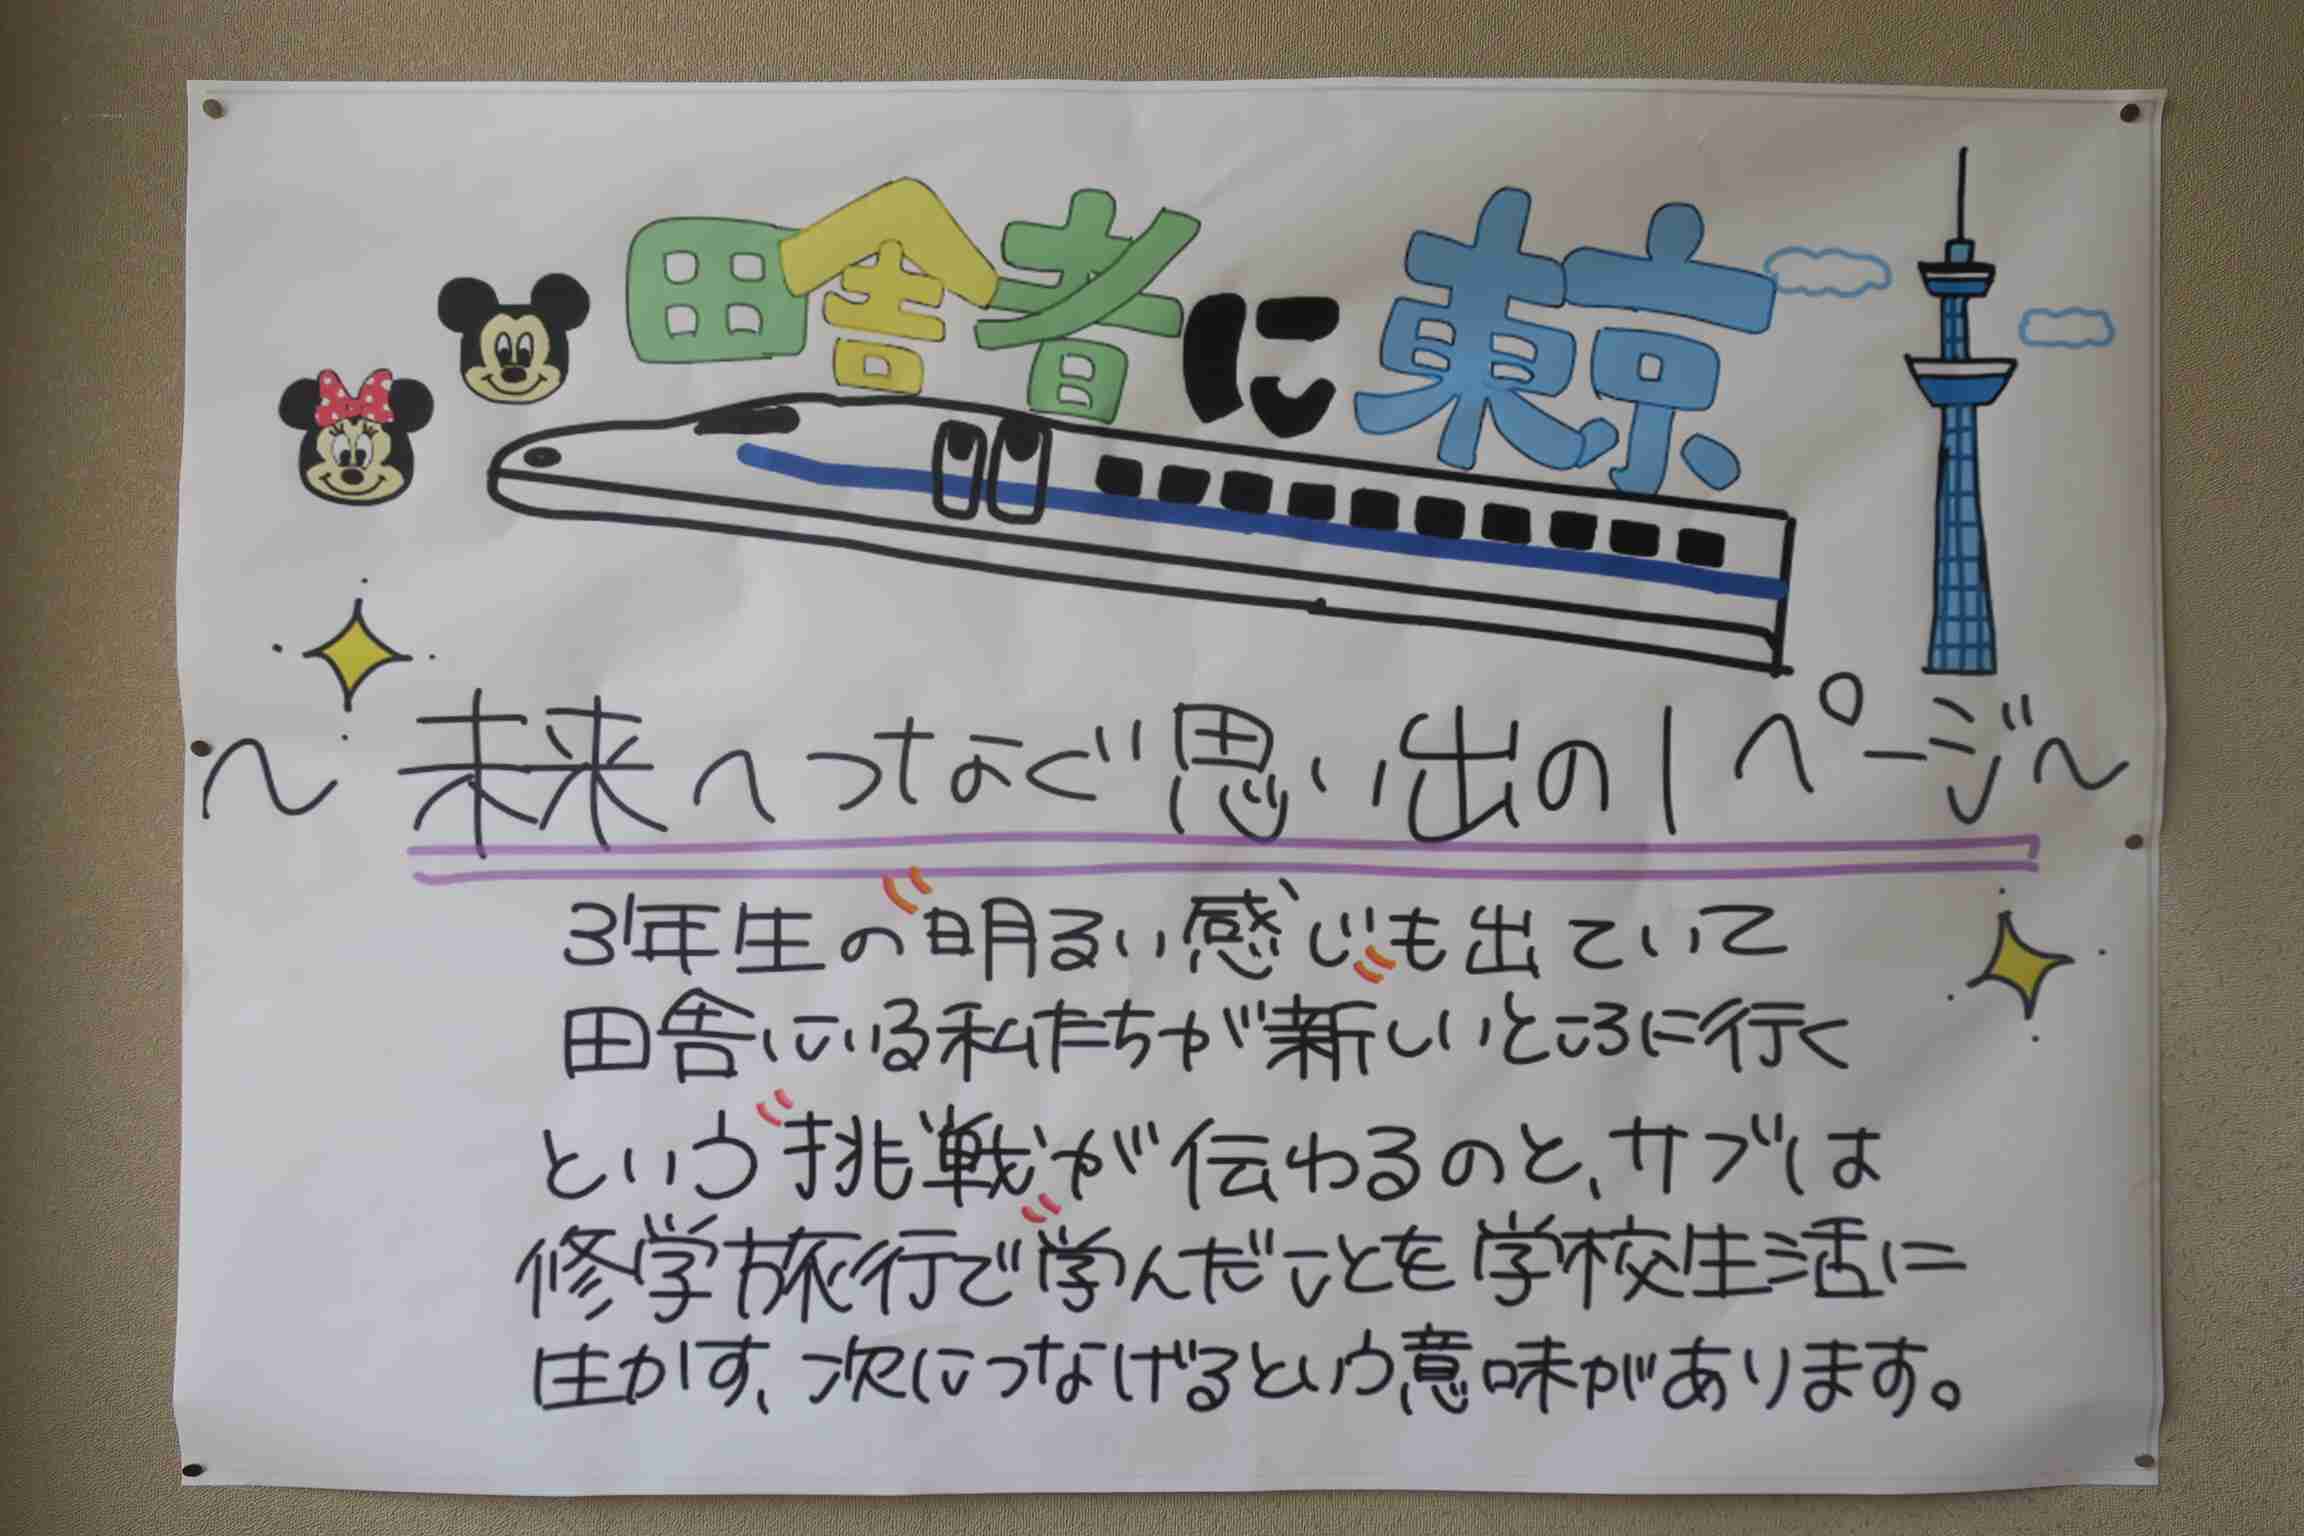 田舎者に東京
～未来へつなぐ思い出の1ページ～
3年生の明るい感じも出ていて
田舎にいる私たちが新しいところに行く
という挑戦が伝わるのと、サブは
修学旅行で学んだことを学校生活に
生かす、次につなげるという意味があります。